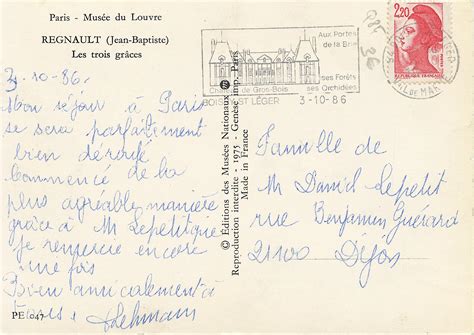 Paris - Musée du Louvre
REGNAULT (Jean-Baptiste)
Les trois grâces
3.10.86.
Mon séjour à Paris
se sera parfaitement
bien déroulé
Commencé de la
plus agréable manière
grâce à M Lepetit que
je remercie encore
une fois
Bien amicalement à
tous. Lehmann
PE 047
© Éditions des Musées Nationaux
Reproduction interdite - 1975 - Genèse imp. Paris
Made in France
Aux Portes
de la Brie
ses Forêts
ses Orchidées
Château de Gros-Bois
BOISSY ST LÉGER
3-10-86
2,20
RÉPUBLIQUE FRANÇAISE
VAL DE MARNE
Famille de
M Daniel Lepetit
rue Benjamin Guérard
21100 Dijon